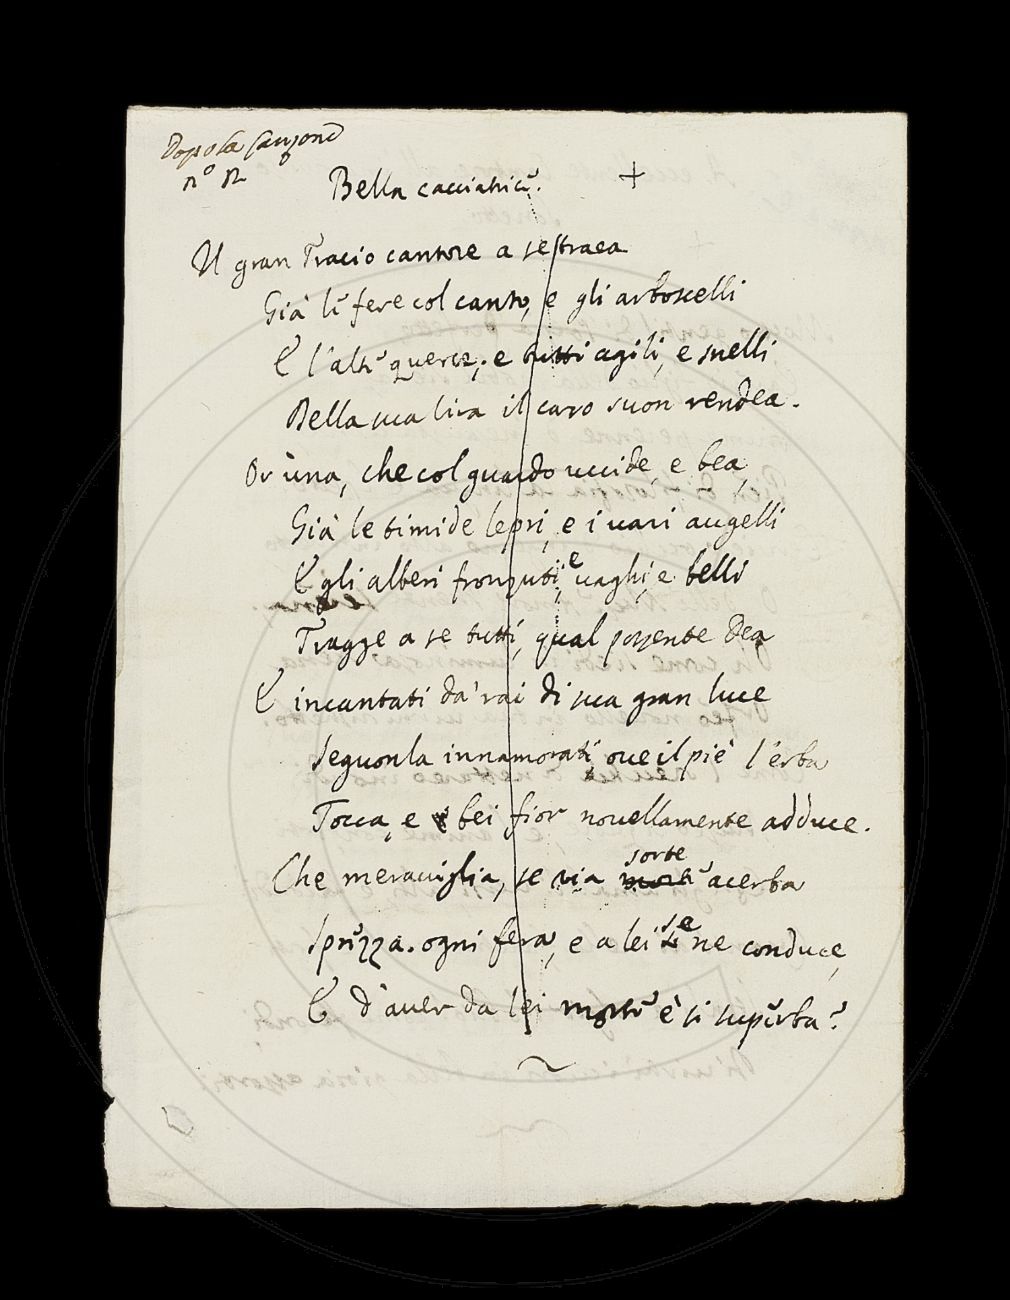 Dopo la Canzone
n° 12
Bella cacciatrice. +
Il gran Tracio cantore a se traea
Già le fere col canto, e gli arboscelli
E l'alte querce; e tutti agili, e snelli
Della sua lira il caro suon rendea.
Or una, che col guardo uccide, e bea,
Già le timide lepri, e i vari augelli
E gli alberi fronzuti, e vaghi, e belli
Tragge a se tutti, qual possente Dea
E incantati da' rai di sua gran luce
Seguonla innamorati, ove il piè l'erba
Tocca, e bei fior novellamente adduce.
Che meraviglia, se via sorte acerba
Sprezza ogni fera, e a lei se ne conduce,
E d'aver da lei morte è sì superba?